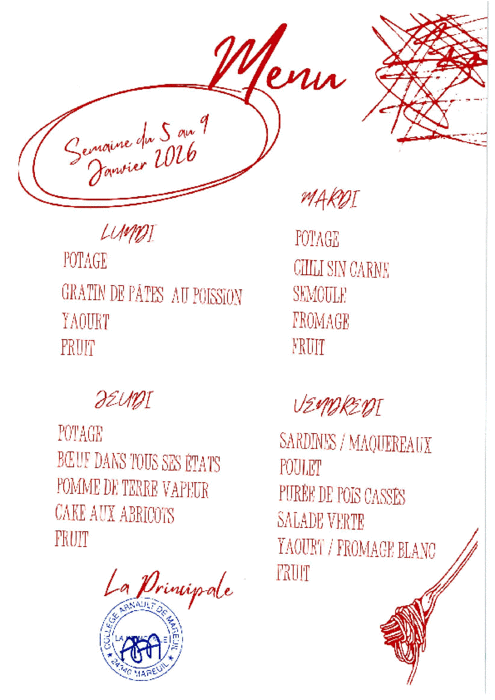 Menu
Semaine du 5 au 9
Janvier 2026
LUNDI
POTAGE
GRATIN DE PÂTES AU POISSION
YAOURT
FRUIT
MARDI
POTAGE
CHILI SIN CARNE
SEMOULE
FROMAGE
FRUIT
JEUDI
POTAGE
BŒUF DANS TOUS SES ÉTATS
POMME DE TERRE VAPEUR
CAKE AUX ABRICOTS
FRUIT
VENDREDI
SARDINES / MAQUEREAUX
POULET
PURÉE DE POIS CASSÉS
SALADE VERTE
YAOURT / FROMAGE BLANC
FRUIT
La Principale
COLLÈGE ARNAULT DE MAREUIL
24340 MAREUIL